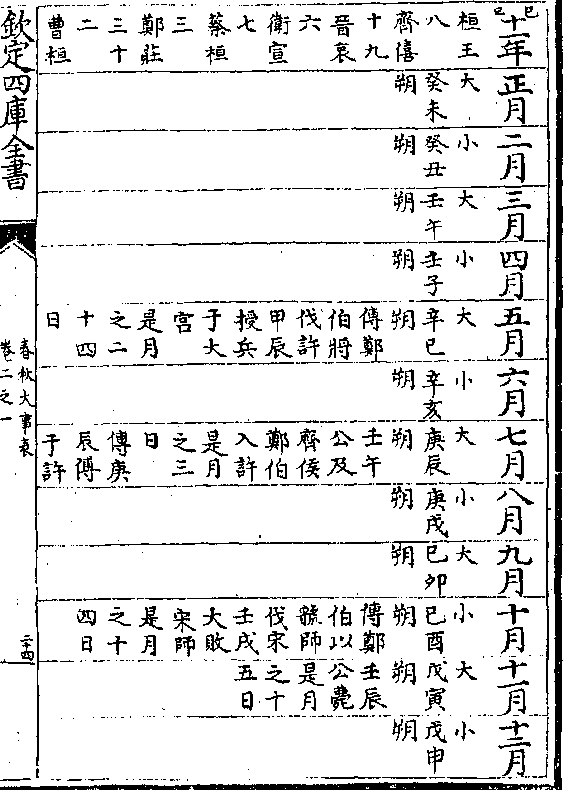 己巳
十一年
桓王
八
齊僖
十九
晉哀
六
衛宣
七
蔡桓
三
鄭莊
三十
二
曹桓
正月
大
癸未
朔
二月
小
癸丑
朔
三月
大
壬午
朔
四月
小
壬子
朔
五月
大
辛巳
朔
傳鄭
伯將
伐許
甲辰
授兵
于大
宮
是月
之二
十四
日
六月
小
辛亥
朔
七月
大
庚辰
朔
壬午
公及
齊侯
鄭伯
入許
是月
之三
日
傳庚
辰傅
于許
八月
小
庚戌
朔
九月
大
己卯
朔
十月
小
己酉
朔
傳鄭
伯以
虢師
伐宋
壬戌
大敗
宋師
是月
之十
四日
十一月
大
戊寅
朔
壬辰
公薨
是月
之十
五日
十二月
小
戊申
朔
欽定四庫全書
春秋大事表
卷二之一
二十四